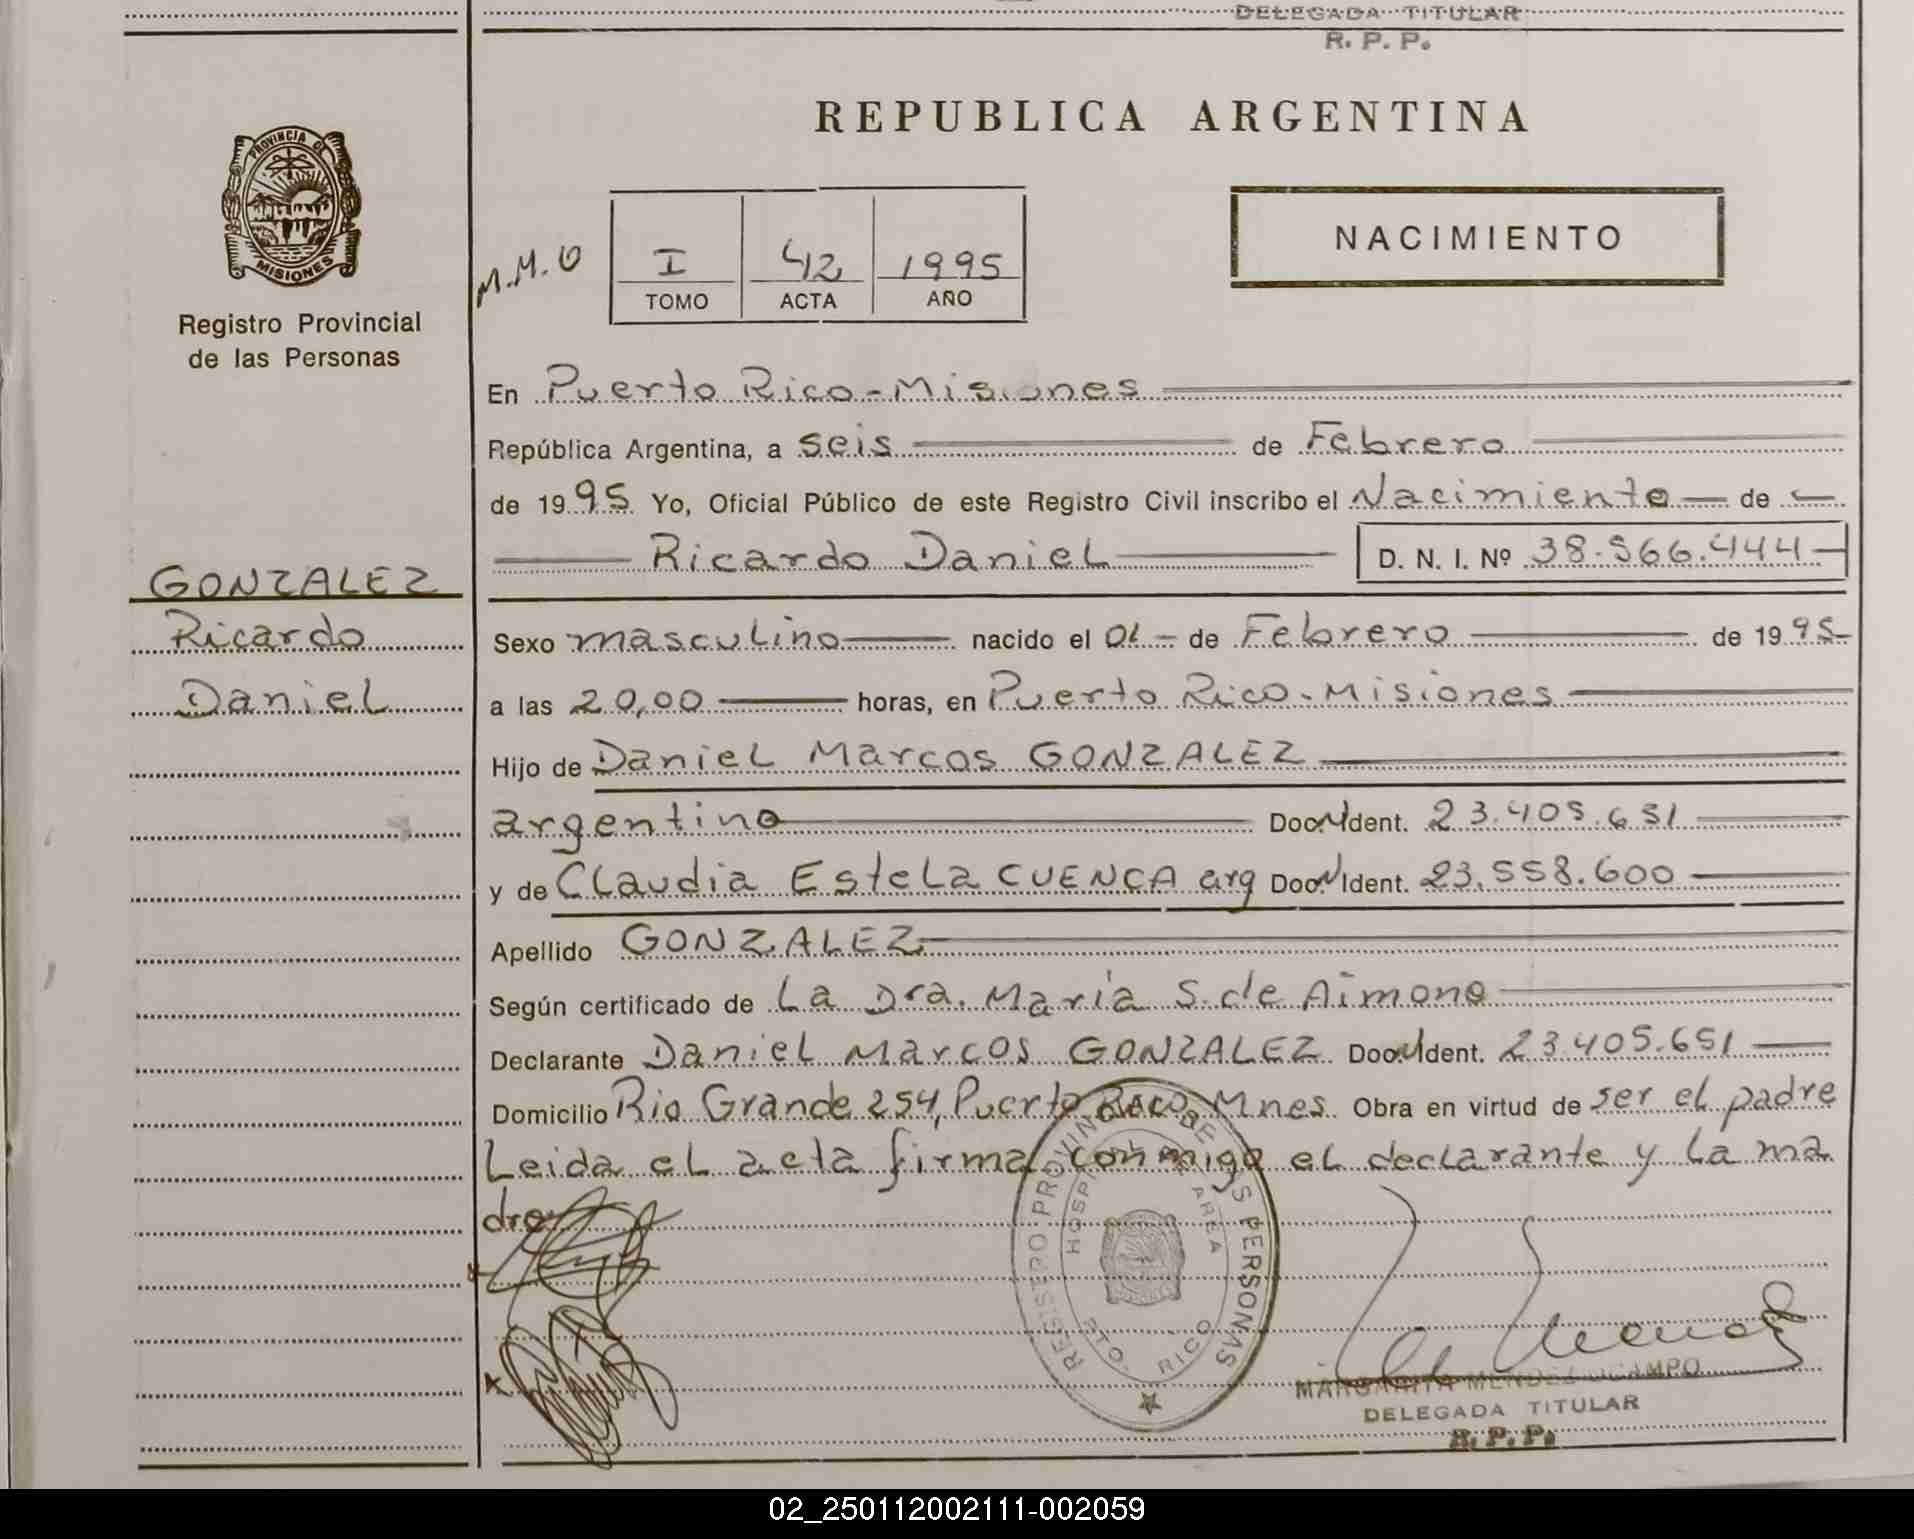 DELEGADA TITULAR
R. P. P.
PROVINCIA DE
MISIONES
Registro Provincial
de las Personas
REPUBLICA ARGENTINA
M.M.O
I
TOMO
42
ACTA
1995
AÑO
NACIMIENTO
En Puerto Rico-Misiones
República Argentina, a seis de Febrero
de 1995 Yo, Oficial Público de este Registro Civil inscribo el Nacimiento de
Ricardo Daniel D. N. I. Nº 38.566.444
GONZALEZ
Ricardo
Daniel
Sexo masculino nacido el 01 de Febrero de 1995
a las 20,00 horas, en Puerto Rico-Misiones
Hijo de Daniel Marcos GONZALEZ
argentino Doc. Ident. 23.405.651
y de Claudia Estela CUENCA arg Doc. Ident. 23.558.600
Apellido GONZALEZ
Según certificado de La Dra. María S. de Aimone
Declarante Daniel Marcos GONZALEZ Doc. Ident. 23.405.651
Domicilio Rio Grande 254, Puerto Rico, Mnes Obra en virtud de ser el padre
Leida el acta firma conmigo el declarante y la ma
dre
REGISTRO PROVINCIAL DE LAS PERSONAS
HOSPITAL AREA
PTO. RICO
MARGARITA MENDEZ OCAMPO
DELEGADA TITULAR
R. P. P.
02_250112002111-002059